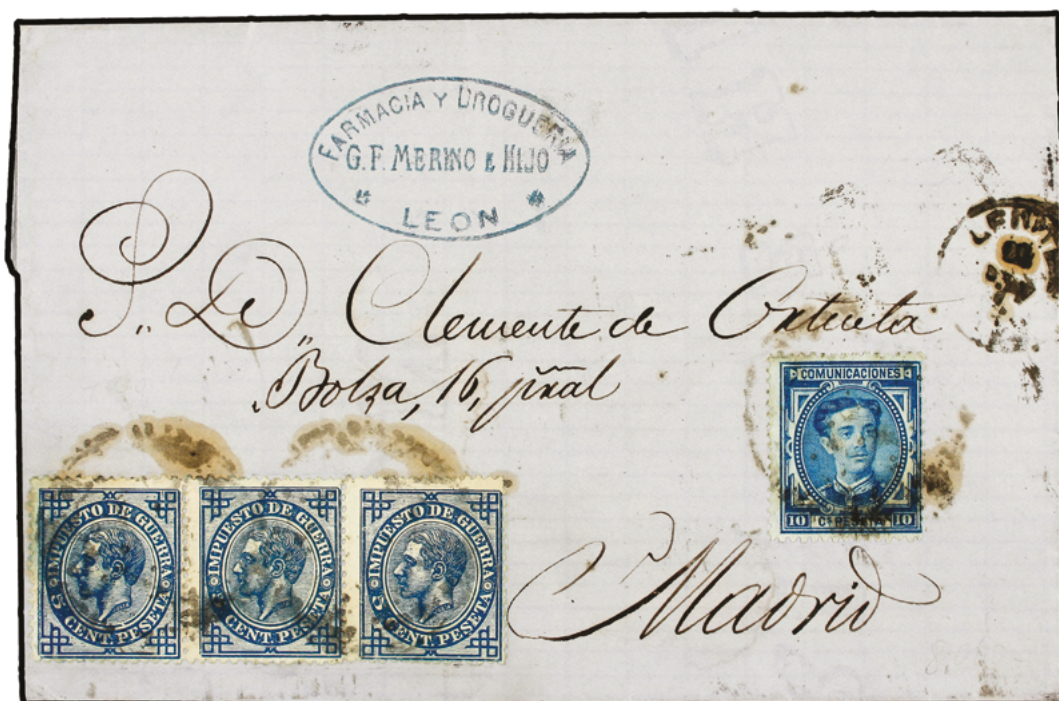 FARMACIA Y DROGUERIA
G. F. MERINO E HIJO
LEON
S. D. Clemente de
Bolza, 16, pral
COMUNICACIONES
10 Cs PESETA 10
IMPUESTO DE GUERRA
5 CENT. PESETA
IMPUESTO DE GUERRA
5 CENT. PESETA
IMPUESTO DE GUERRA
5 CENT. PESETA
Madrid